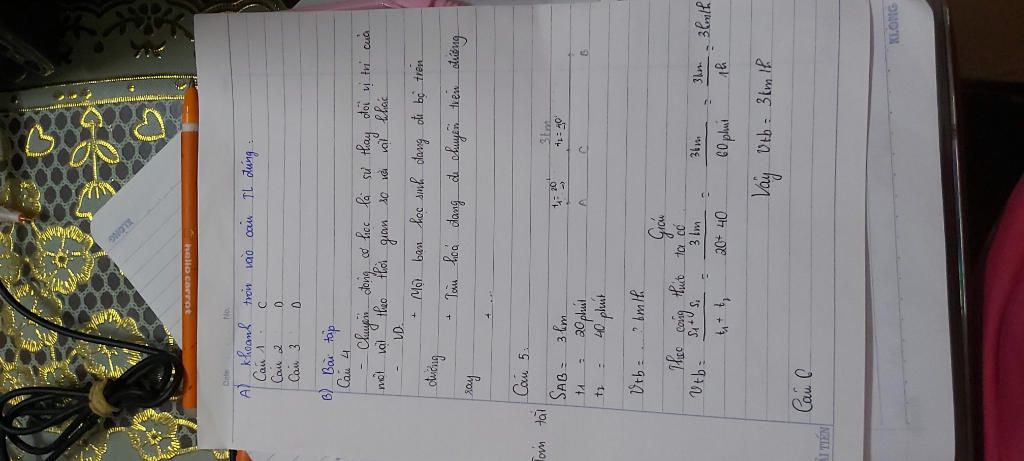 Date No.
A) Khoanh tròn vào câu TL đúng:
Câu 1: C
Câu 2: D
Câu 3: D
B) Bài tập
Câu 4
- Chuyển động cơ học là sự thay đổi vị trí của
một vật theo thời gian so với vật khác
- VD. + Một bạn học sinh đang đi bộ trên
đường
+ Tàu hoả đang di chuyển trên đường
ray
+ ....
Câu 5:
Tóm tắt
SAB = 3km
t1 = 20phút
t2 = 40phút
Vtb = ...? km/h
3km
t1 = 20' t2 = 40'
A C B
Giải
Theo công thức ta có
Vtb = S1 + S2 / t1 + t2 = 3km / 20 + 40 = 3km / 60 phút = 3km / 1h = 3km/h
Vậy Vtb = 3km/h
Câu 6
KLONG
KLONG
hello carrot
ẢI TIẾN